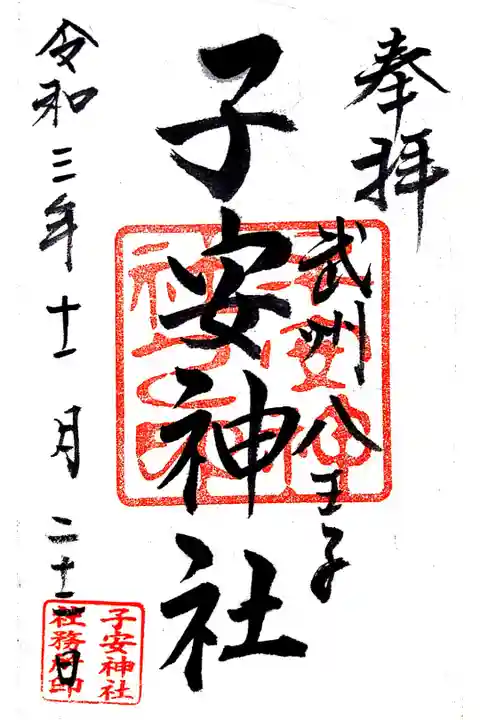 奉拝
武州八王子
子安神社
令和三年十一月二十一日
子安神社
社務所印